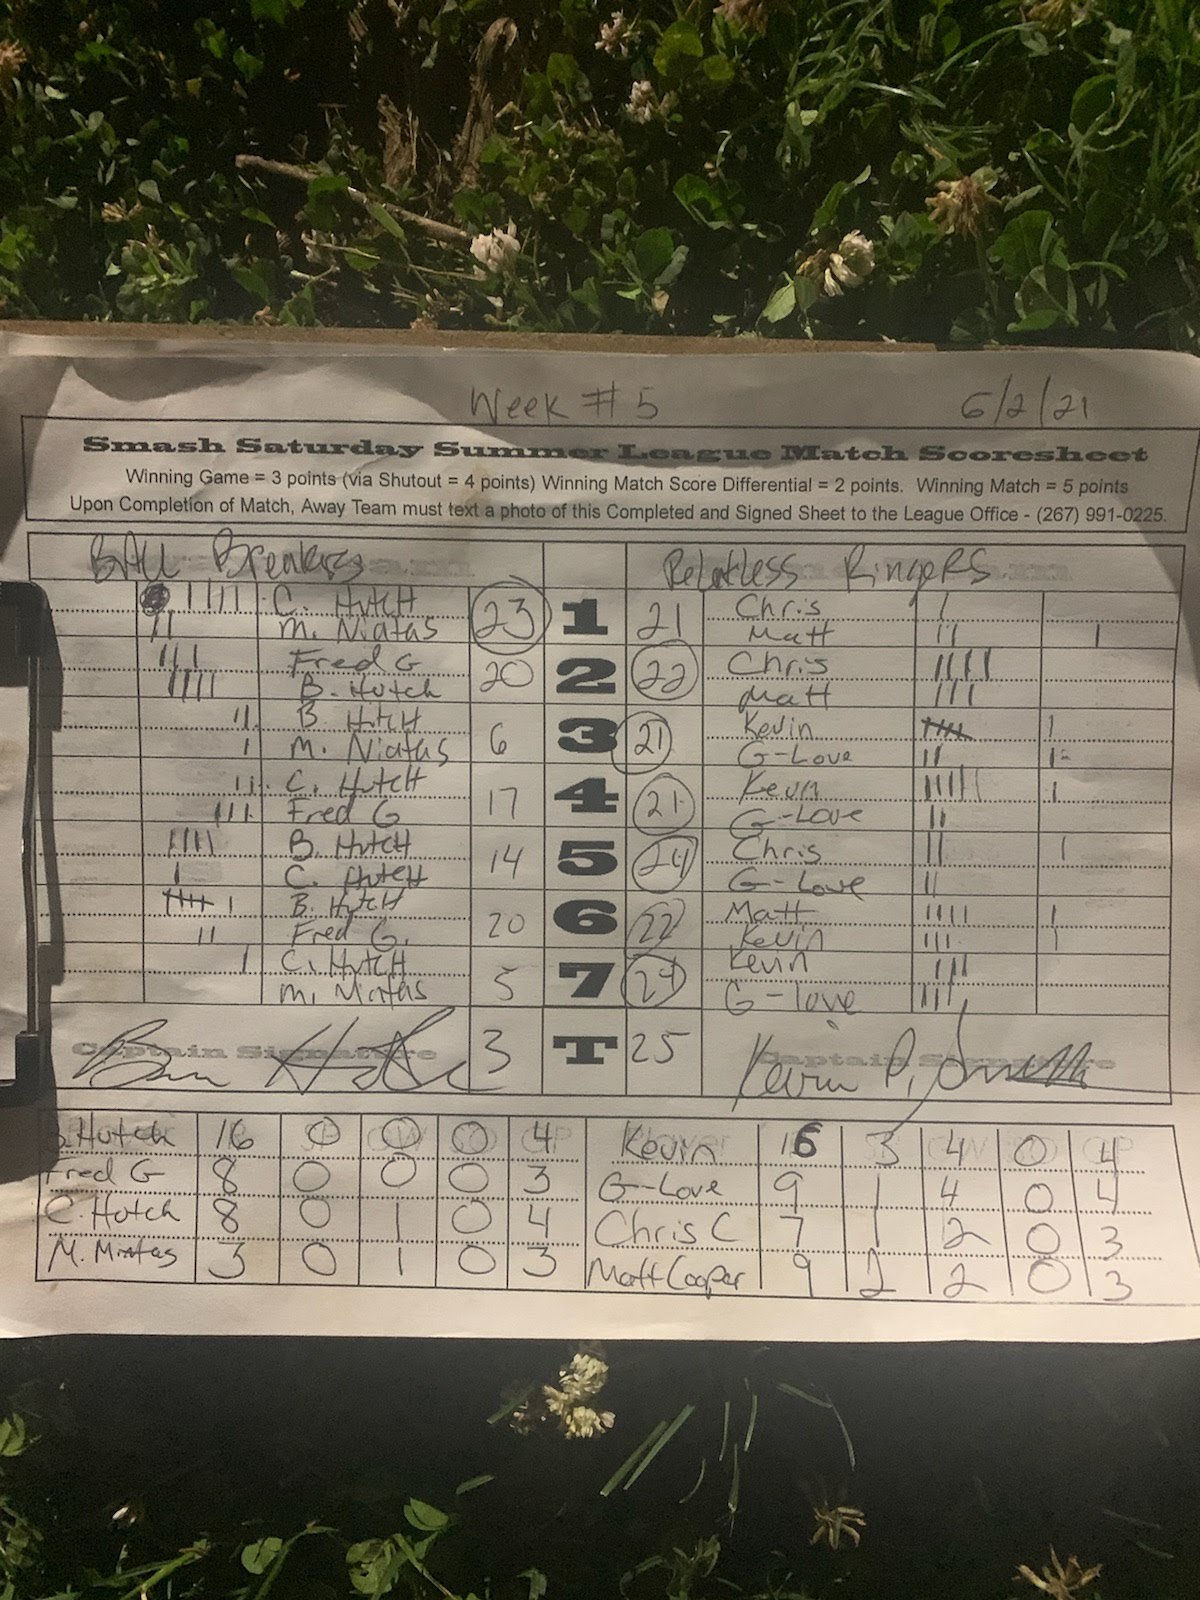 Week #5 6/2/21
Smash Saturday Summer League Match Scoresheet
Winning Game = 3 points (via Shutout = 4 points) Winning Match Score Differential = 2 points. Winning Match = 5 points
Upon Completion of Match, Away Team must text a photo of this Completed and Signed Sheet to the League Office - (267) 991-0225.
Ball Breakers Relentless Ringers
C. Hutch 23 1 21 Chris
M. Niatas Matt
Fred G 20 2 22 Chris
B. Hutch Matt
B. Hutch 6 3 21 Kevin
M. Niatas G-Love
C. Hutch 17 4 21 Kevin
Fred G G-Love
B. Hutch 14 5 24 Chris
C. Hutch G-Love
B. Hutch 20 6 22 Matt
Fred G. Kevin
C. Hutch 5 7 24 Kevin
M. Niatas G-love
Captain Signature 3 T 25 Captain Signature
Kevin P.
B. Hutch 16 0 0 0 4 Kevin 16 3 4 0 4
Fred G 8 0 0 0 3 G-Love 9 1 4 0 4
C. Hutch 8 0 1 0 4 Chris C 7 1 2 0 3
M. Mintas 3 0 1 0 3 Matt Cooper 9 2 2 0 3